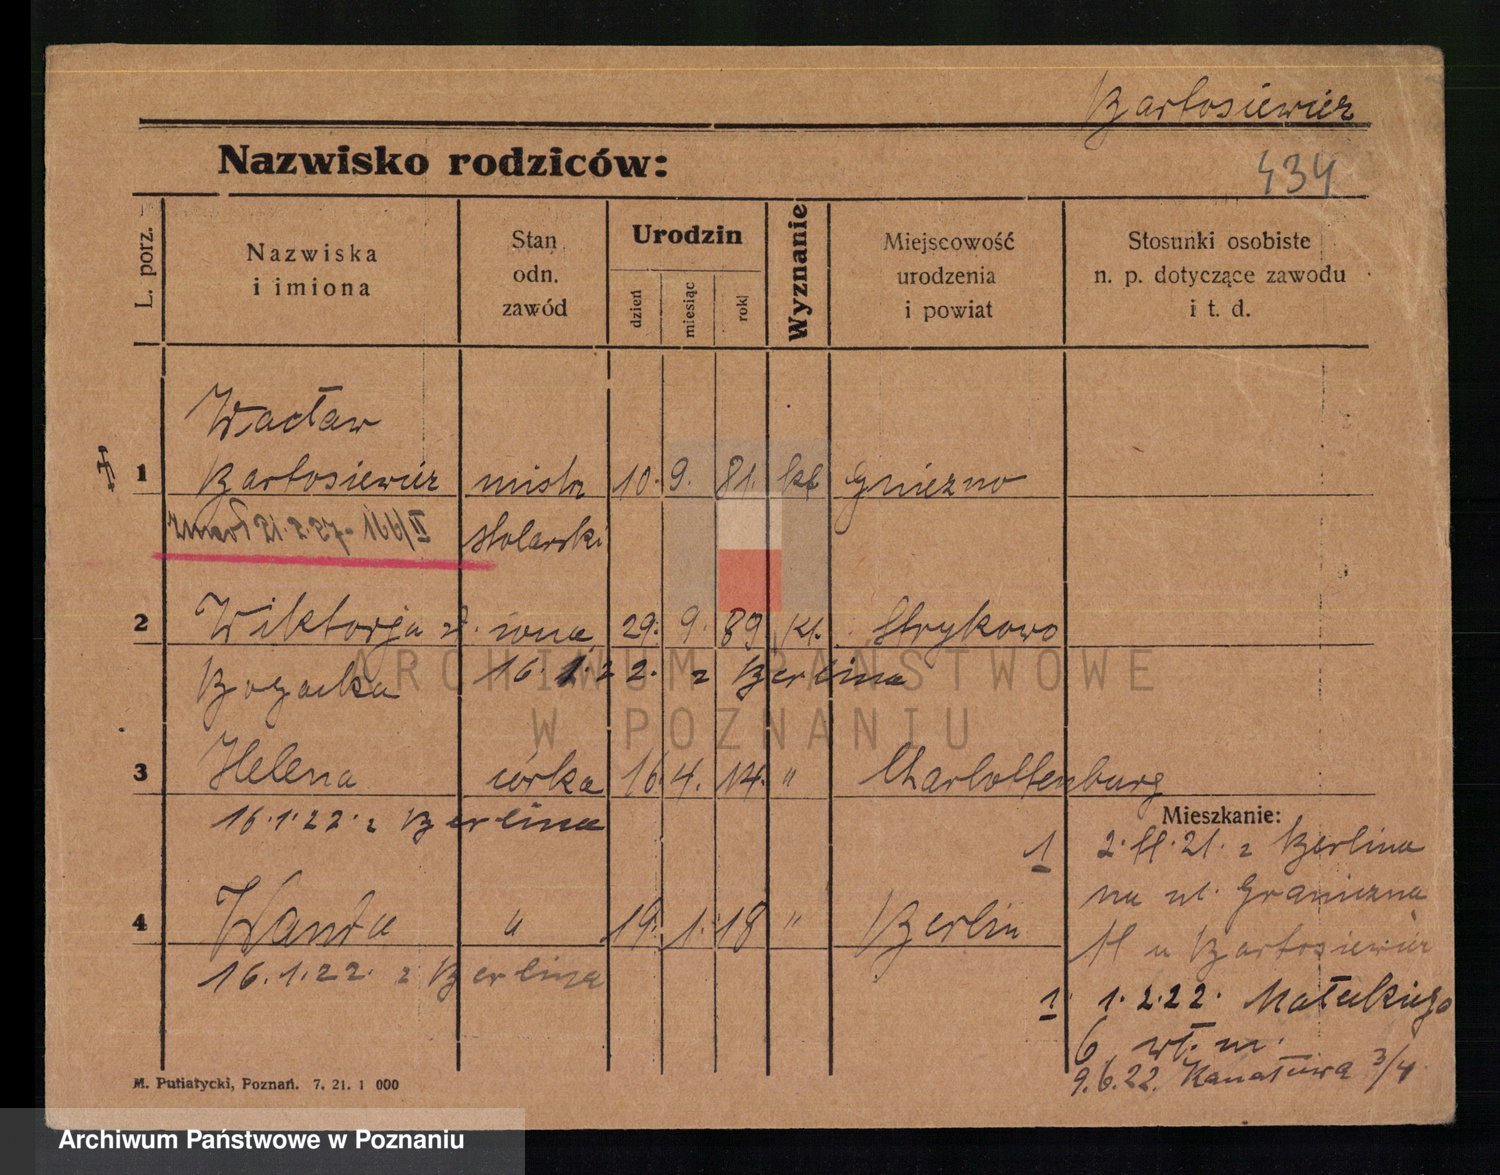 Bartosiewicz
Nazwisko rodziców:
434
L. porz.
Nazwiska
i imiona
Stan
odn.
zawód
Urodzin
dzień
miesiąc
rok
Wyznanie
Miejscowość
urodzenia
i powiat
Stosunki osobiste
n. p. dotyczące zawodu
i t. d.
Wacław
1 Bartosiewicz mistrz 10. 9. 81. kt Gniezno
stolarski
2 Wiktorja z. żona 29. 9. 89 kt. Strykowo
Bogacka 16.1.22. z Berlina
3 Helena córka 16 4. 14. " Charlottenburg
16.1.22. z Berlina
4 Wanda " 19. 1. 18 " Berlin
16.1.22. z Berlina
Mieszkanie:
1 2.11.21. z Berlina
na ul. Graniczna
11 u Bartosiewicz
1. 1.2.22. Małeckiego
6 wł. m.
9.6.22. Kanałowa 3/4
M. Putiatycki, Poznań. 7. 21. 1 000
ARCHIWUM PAŃSTWOWE
W POZNANIU
Archiwum Państwowe w Poznaniu